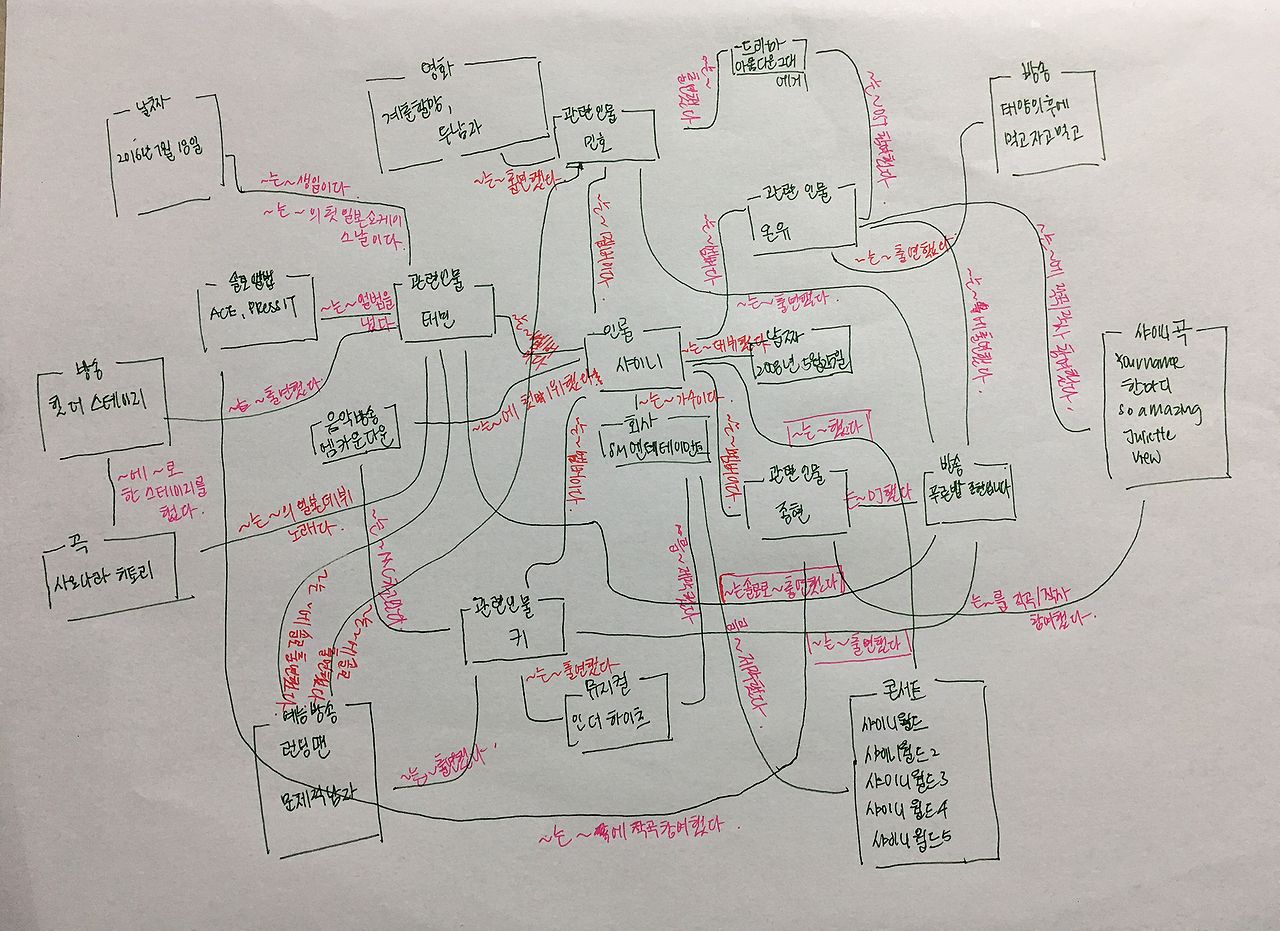 날짜
2016년 7월 18일
영화
계춘할망,
두남자
관련인물
민호
~드라마
아름다운 그대
에게
방송
태양의 후예
먹고자고먹고
~는~출연했다
~는~생일이다.
~는~의 첫 일본쇼케이
스날이다.
~는~출연했다
~는~멤버이다.
관련 인물
온유
~는~멤버이다
~는~출연했다.
솔로앨범
ACE, PRESS IT
~는~앨범을
냈다
관련인물
태민
~는~출연했다.
인물
샤이니
~는~데뷔했다
날짜
2008년 5월 25일
샤이니 곡
Your name
한마디
So amazing
Juliette
View
방송
힛 더 스테이지
~는 출연했다
음악방송
엠카운트다운
~는~가수이다.
회사
SM엔터테이먼트
~는~했다
~는~멤버이다.
~는~멤버이다.
관련 인물
종현
~는~DJ했다
방송
푸른밤 종현입니다
~에 ~로
한 스테이지를
했다.
~는~의 일본데뷔
노래다.
곡
사요나라 히토리
~는솔로로~출연했다
~는~를 작곡/작사
참여했다.
관련인물
키
~는~출연했다
~는~출연했다
뮤지컬
인 더 하이츠
~를~제작했다.
예능방송
런닝맨
문제적남자
~는~출연했다.
~는~곡에 작곡참여했다.
콘서트
샤이니월드
샤이니월드2
샤이니월드3
샤이니월드4
샤이니월드5